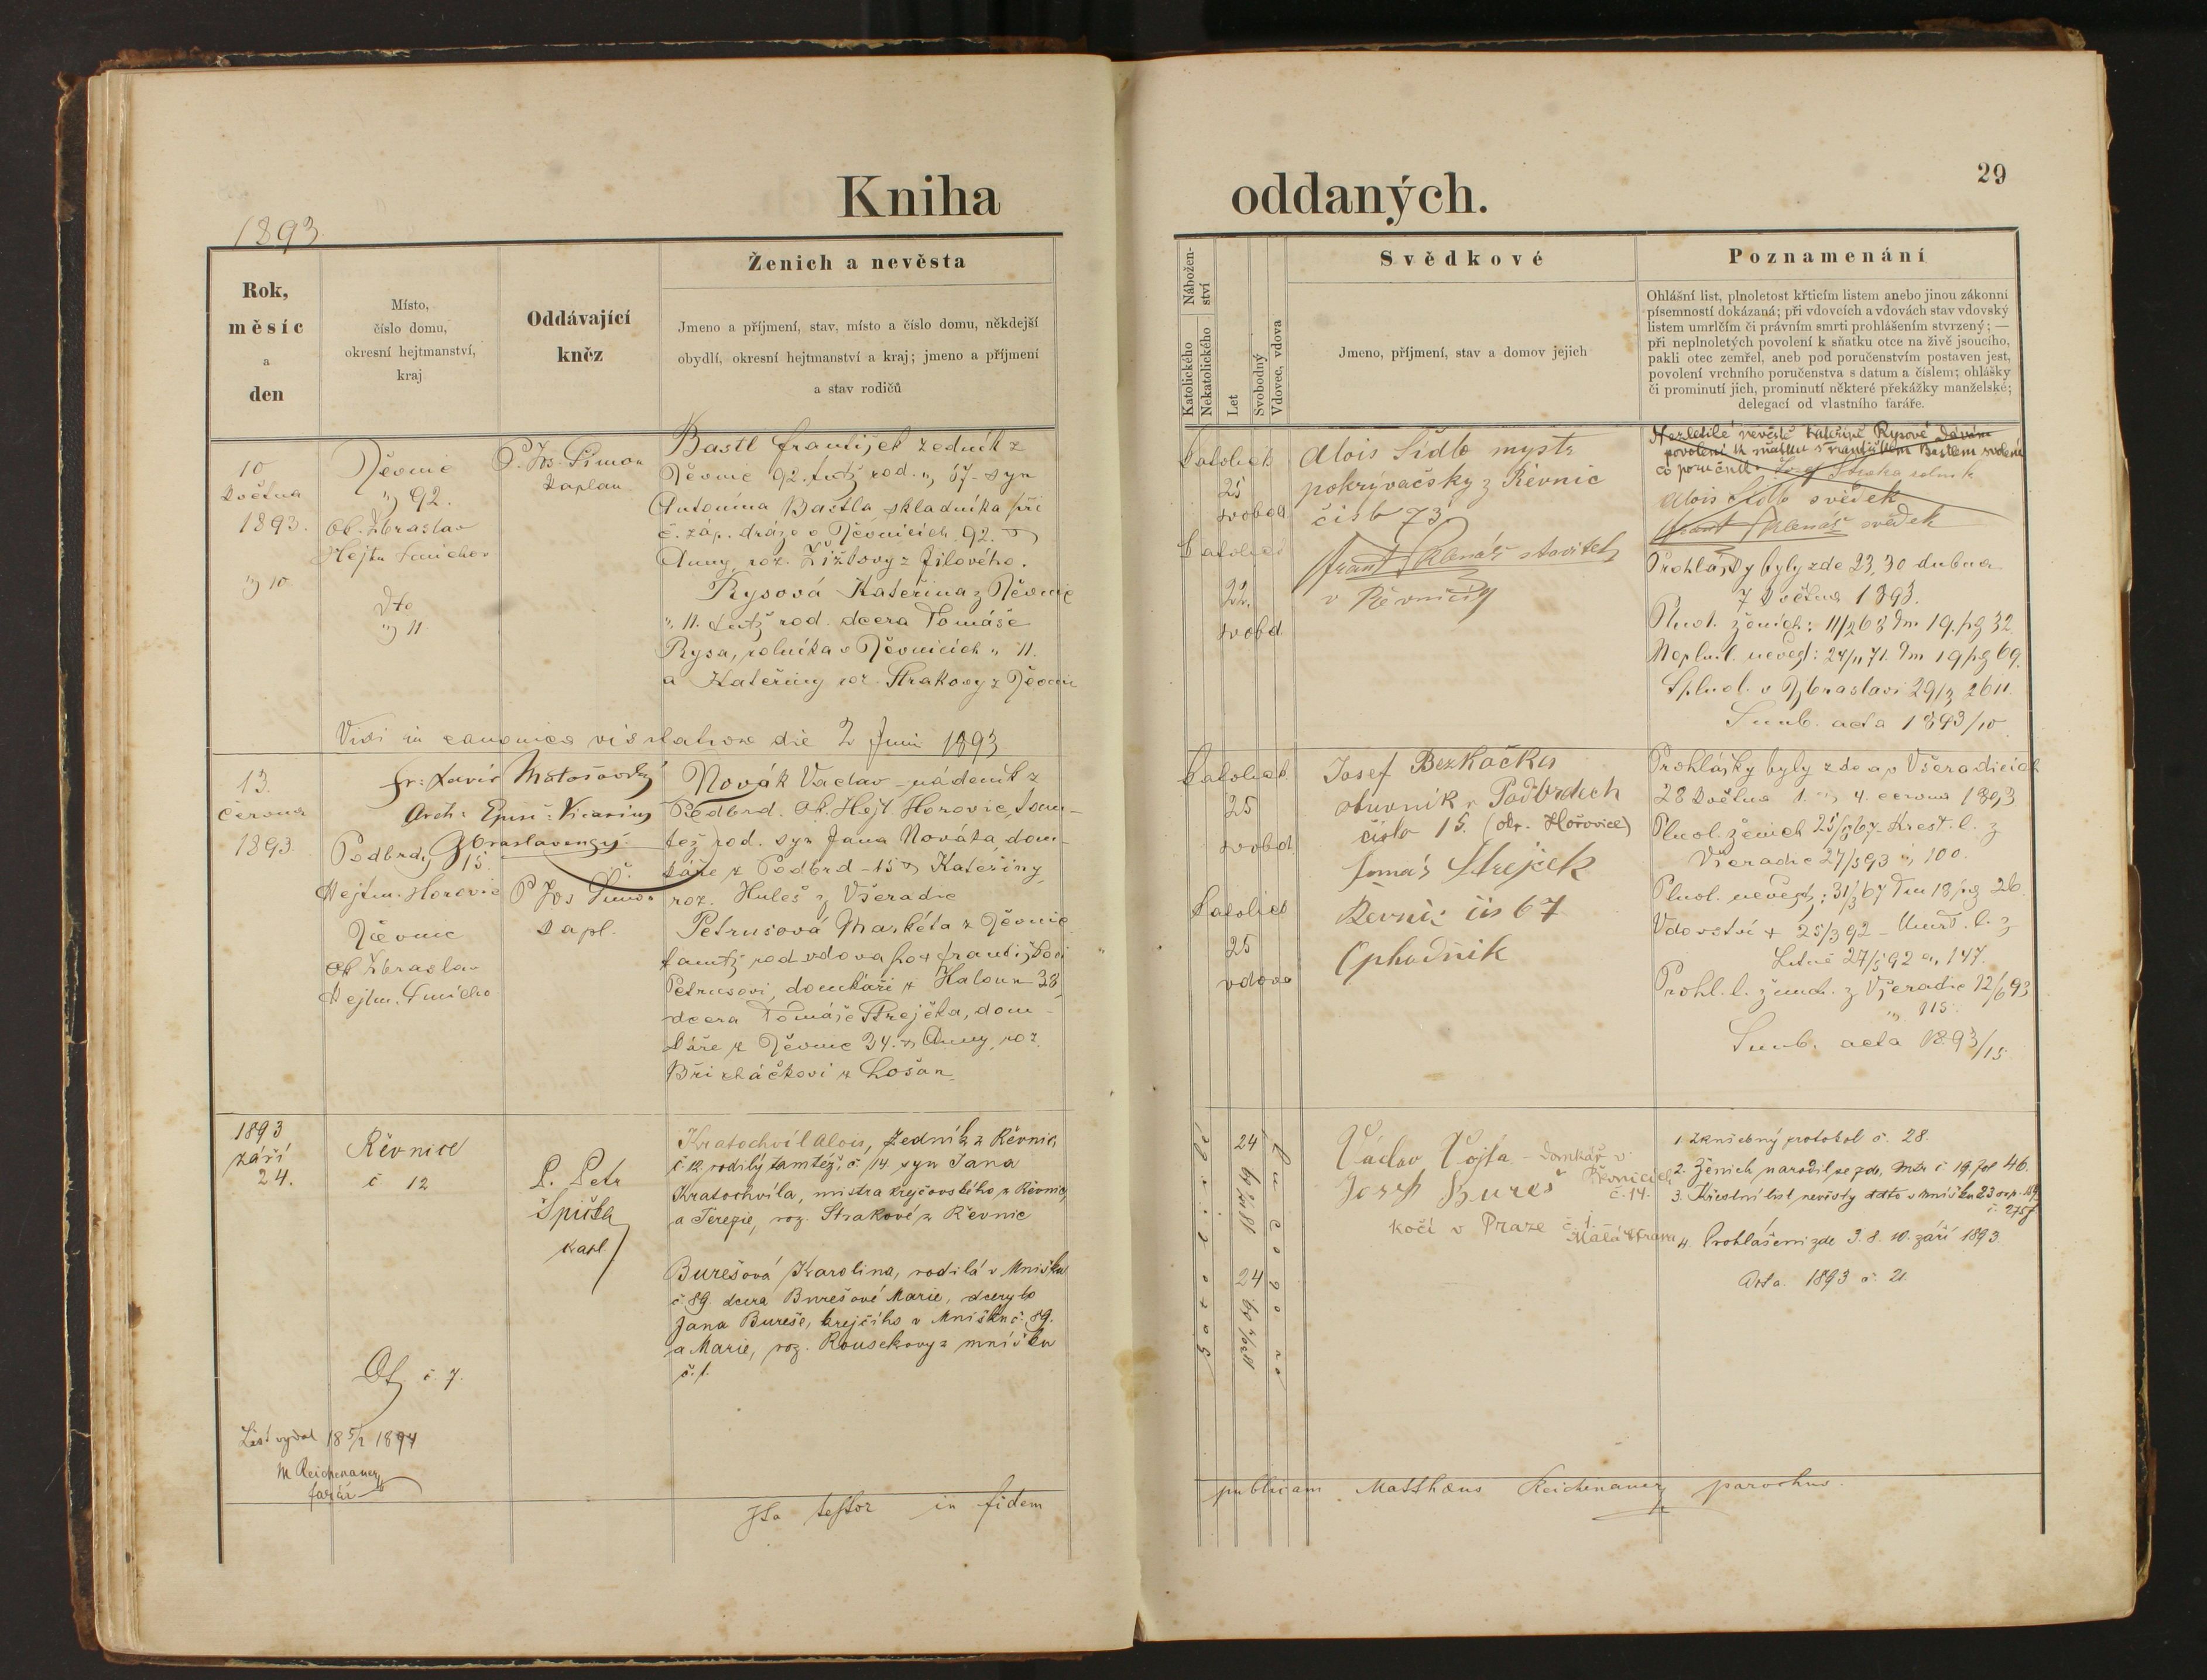 Kniha
oddaných.
29
1893
Rok,
měsíc
a
den
Místo,
číslo domu,
okresní hejtmanství,
kraj
Oddávající
kněz
Ženich a nevěsta
Jmeno a příjmení, stav, místo a číslo domu, někdejší
obydlí, okresní hejtmanství a kraj; jmeno a příjmení
a stav rodičů
Nábožen-
ství
Katolického
Nekatolického
Let
Svobodný
Vdovec, vdova
Svědkové
Jmeno, příjmení, stav a domov jejich
Poznamenání
Ohlášní list, plnoletost křticím listem anebo jinou zákonní
písemností dokázaná; při vdovcích a vdovách stav vdovský
listem umrlčím či právním smrti prohlášením stvrzený; —
při neplnoletých povolení k sňatku otce na živě jsoucího,
pakli otec zemřel, aneb pod poručenstvím postaven jest,
povolení vrchního poručenstva s datum a číslem; ohlášky
či prominutí jich, prominutí některé překážky manželské;
delegací od vlastního faráře.
10
Května
1893.
Řevnic
92.
Ob. Zbraslav
Hejtm Smíchov
10
Dto
11
P. Jos. Šimon
Kaplan
Bastl František zedník z
Řevnic 92. tutž rod. 67 syn
Antonína Bastla skladníka při
č. záp. dráze v Řevnicích 92.
Anny, roz. Žižkovy z Jílového.
Rysová Kateřina z Řevnic
11. tutž rod. dcera Tomáše
Rysa, rolníka v Řevnicích 11.
a Kateřiny roz. Strakovy z Řevnic
Katolick
25
svobod
Katolick
22
svobd.
Alois Sidlo mystr
pokrývačský z Řevnic
čislo 73
stavitel
v Řevnicích
Nezletilé nevěstě Kateřině Rysové dávám
povolení k sňatku s Františkem Bastlem svolení
co poručník Josef Straka rolník
Alois Sidlo svědek
svědek
Prohlášky byly zde 23, 30 dubna
7 května 1893.
Plnol. ženich: 11/2 68 Tm 19. pg 32
Neplnl. nevěst: 24/11 71. Tm 19 pg 69.
Splnol. v Zbraslavi 29/3 2611.
Sunb. acta 1893/10
Vidi in canonica visitatione die 2 Juni 1893
Fr: Xaver Matošovský
Arch: Episc: Vicarius
Zbraslavensis
13.
června
1893
Podbrdy 15
Hejtm. Horovic
Řevnic
Ob Zbraslav
Hejtm. Smícho
P Jos Šimon
Kapl.
Novák Vaclav nádeník z
Podbrd. Ob. Hejt Horovic, tam-
též rod. syn Jana Nováka, dom-
káře z Podbrd 15 Kateřiny,
roz. Huleš z Všeradic
Petrusová Markéta z Řevnic
tamtž rod vdova po + Františkovi
Petrusovi, domkáři z Haloun 38,
dcera Tomáše Strejčka, dom-
káře z Řevnic 34. Anny, roz.
Břicháčkovi z Lošan
Katolick
25
svobod
Katolick
25
vdova
Josef Bezkočka
obuvník v Podbrdech
číslo 15. (okr. Hořovice)
Tomáš Strejček
Řevnic čis 67
Ophodnik
Prohlášky byly zde a v Všeradicích
28 Května 1. 4. června 1893
Plnol. ženich 25/8 67. Křest. l. z
Všeradic 27/5 93 100.
Plnol. nevěst: 31/3 67 Tm 18 pg 26
Vdovství + 25/3 92 – Umrt. l. z
Litně 27/5 92 147.
Prohl. l. ženich. z Všeradic 12/6 93
115.
Sunb. acta 1893/15
1893
září
24.
Řevnice
č 12
P. Petr
Špička
kapl.
Kratochvíl Alois, zedník z Řevnic
č 12, rodilý tamtéž, č. 14 syn Jana
Kratochvíla, mistra krejčovského z Řevnic
a Terezie, roz. Strakové z Řevnic
Burešová Karolina, rodilá v Mníšku
č. 89. dcera Burešové Marie, dcery to
Jana Bureše, krejčího v Mníšku č. 89.
a Marie, roz. Rousekovy z Mníšku
č. 1.
č. 7.
List vydal 18 5/2 1894
M Reichenauer
farář
24
24
Václav Vojta – domkář v
Řevnicích
č. 14.
Josef Bureš
kočí v Praze č. 1.
Malá strana
1. Zknšební protokol č. 28.
2. Ženich narodil se zde, Mtr. č 19. fol 46.
3. Křestní list nevěsty ddto v Mníšku 23 srp. 189
č. 275
4. Prohlášeni zde 3. 8. 10. září 1893
Acta. 1893 č. 21.
Ita testor in fidem
publicam Matthaeus Reichenauer parochus.